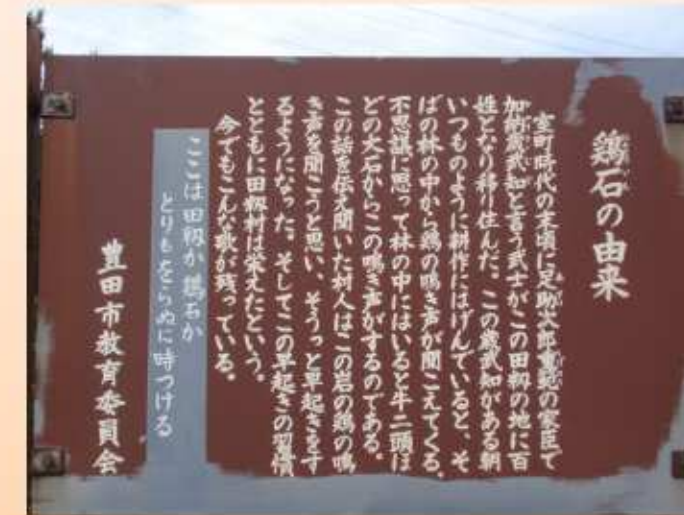 鶏石の由来
室町時代の末頃に足助次郎重範の家臣で
加納蔵武知と言う武士がこの田籾の地に百
姓となり移り住んだ。この蔵武知がある朝
いつものように耕作にはげんでいると、そ
ばの林の中から鶏の鳴き声が聞こえてくる。
不思議に思って林の中にはいると牛二頭ほ
どの大石からこの鳴き声がするのである。
この話を伝え聞いた村人はこの岩の鶏の鳴
き声を聞こうと思い、そうっと早起きをす
るようになった。そしてこの早起きの習慣
とともに田籾村は栄えたという。
今でもこんな歌が残っている。
ここは田籾か鶏石か
とりもをらぬに時つける
豊田市教育委員会